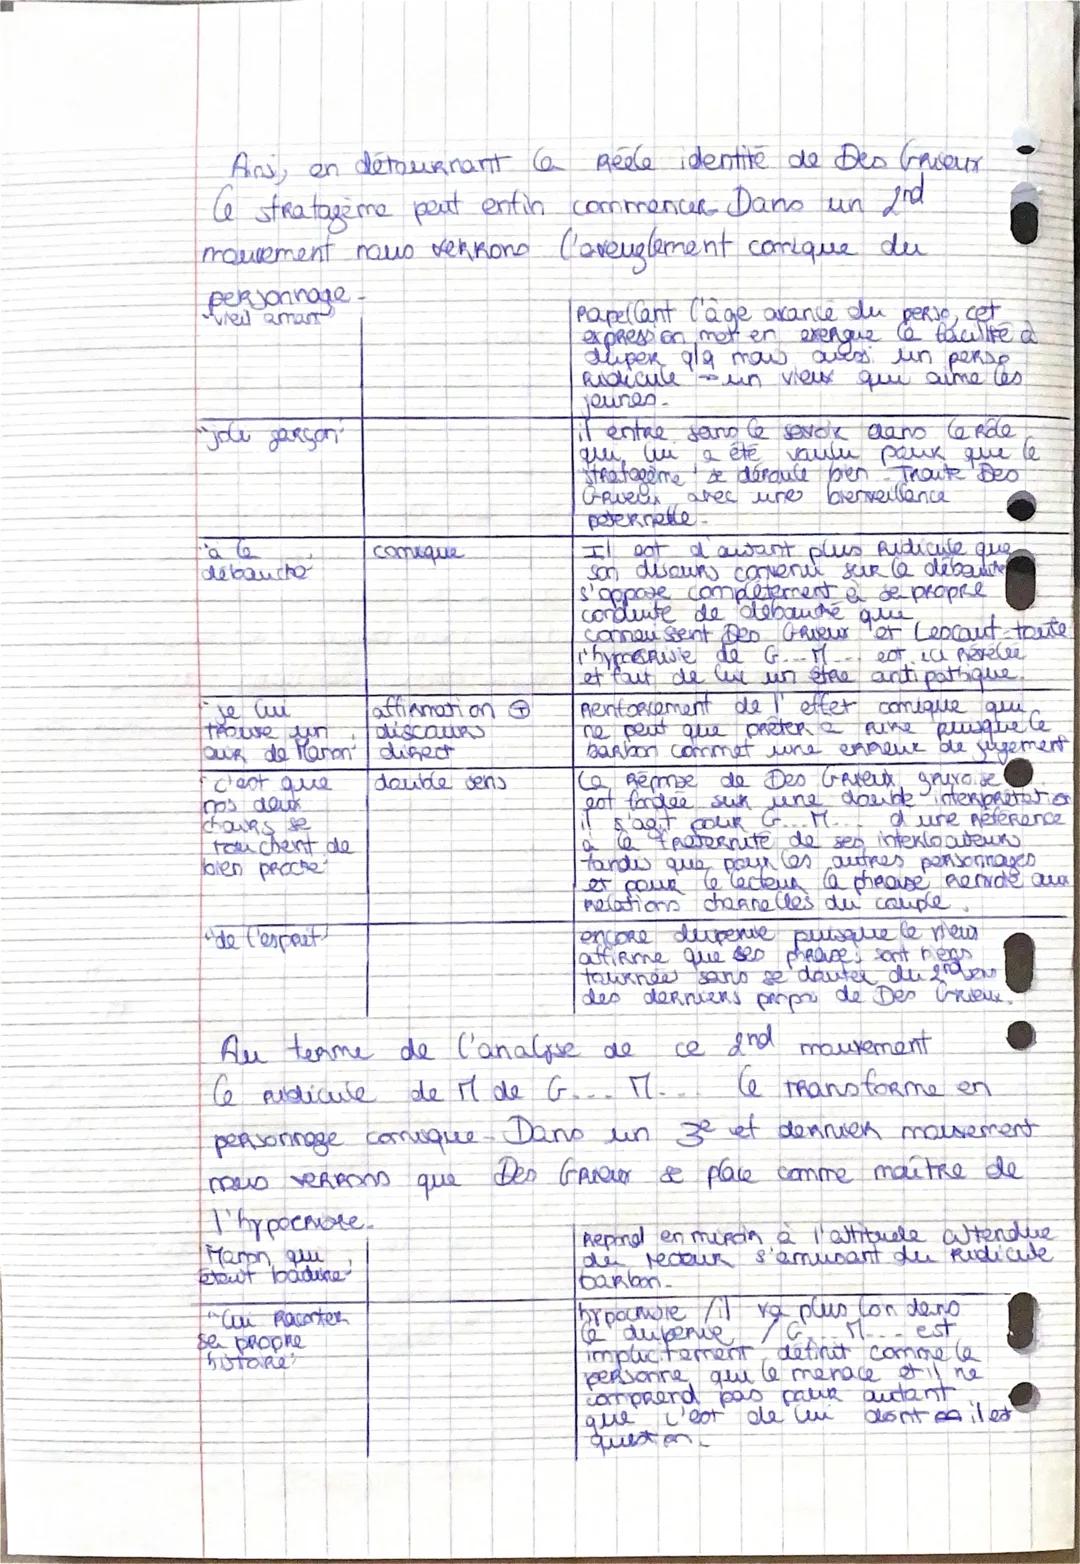 Ansi, en détournant la réele identité de Des Grieux
le stratagème peut enfin commencer. Dans un 2nd
mouvement nous verrons l'aveuglement comique du
personnage.
"vieil amant"
rapellant l'âge avancé du perso, cet
expression met en exergue la faculté à
duper qlq mais aussi un perso
ridicule → un vieux qui aime les
jeunes.
"joli garçon"
il entre sans le savoir dans le rôle
qui lui a été voulu pour que le
stratagème se déroule bien. Traite Des
Grieux avec une bienveillance
paternelle.
"à la
débauche"
comique
Il est d'autant plus ridicule que
son discours convenu sur la débauche
s'oppose complètement à sa propre
conduite de débauché que
connaissent Des Grieux et Lescaut toute
l'hypocrisie de G... M... est ici révélée
et fait de lui un être antipathique.
"je lui
trouve un
air de Manon"
affirmation ⊕
discours
direct
Renforcement de l'effet comique qui
ne peut que prêter à rire puisque le
barbon commet une erreur de jugement
"c'est que
nos deux
chairs se
touchent de
bien proche"
double sens
La reprise de Des Grieux
est fondée sur une double interprétation
il s'agit pour G... M... d'une référence
à la fraternité de ses interlocuteurs
tandis que pour les autres personnages
et pour le lecteur la phrase renvoie aux
relations charnelles du couple.
"de l'esprit"
encore duperie puisque le vieux
affirme que ses phrases sont biens
tournées sans se douter du 2nd sens
des derniers propos de Des Grieux.
Au terme de l'analyse de ce 2nd mouvement
le ridicule de M de G... M... le transforme en
personnage comique. Dans un 3e et dernier mouvement
nous verrons que Des Grieux se place comme maître de
l'hypocrisie.
Manon qui
était badine"
Répond en miroir à l'attitude attendue
du lecteur s'amusant du ridicule
barbon.
"lui raconter
sa propre
histoire"
hypocrisie / il va plus loin dans
la duperie / G... M... est
implicitement définit comme la
personne qui le menace et il ne
comprend pas pour autant
que c'est de lui dont il est
question.